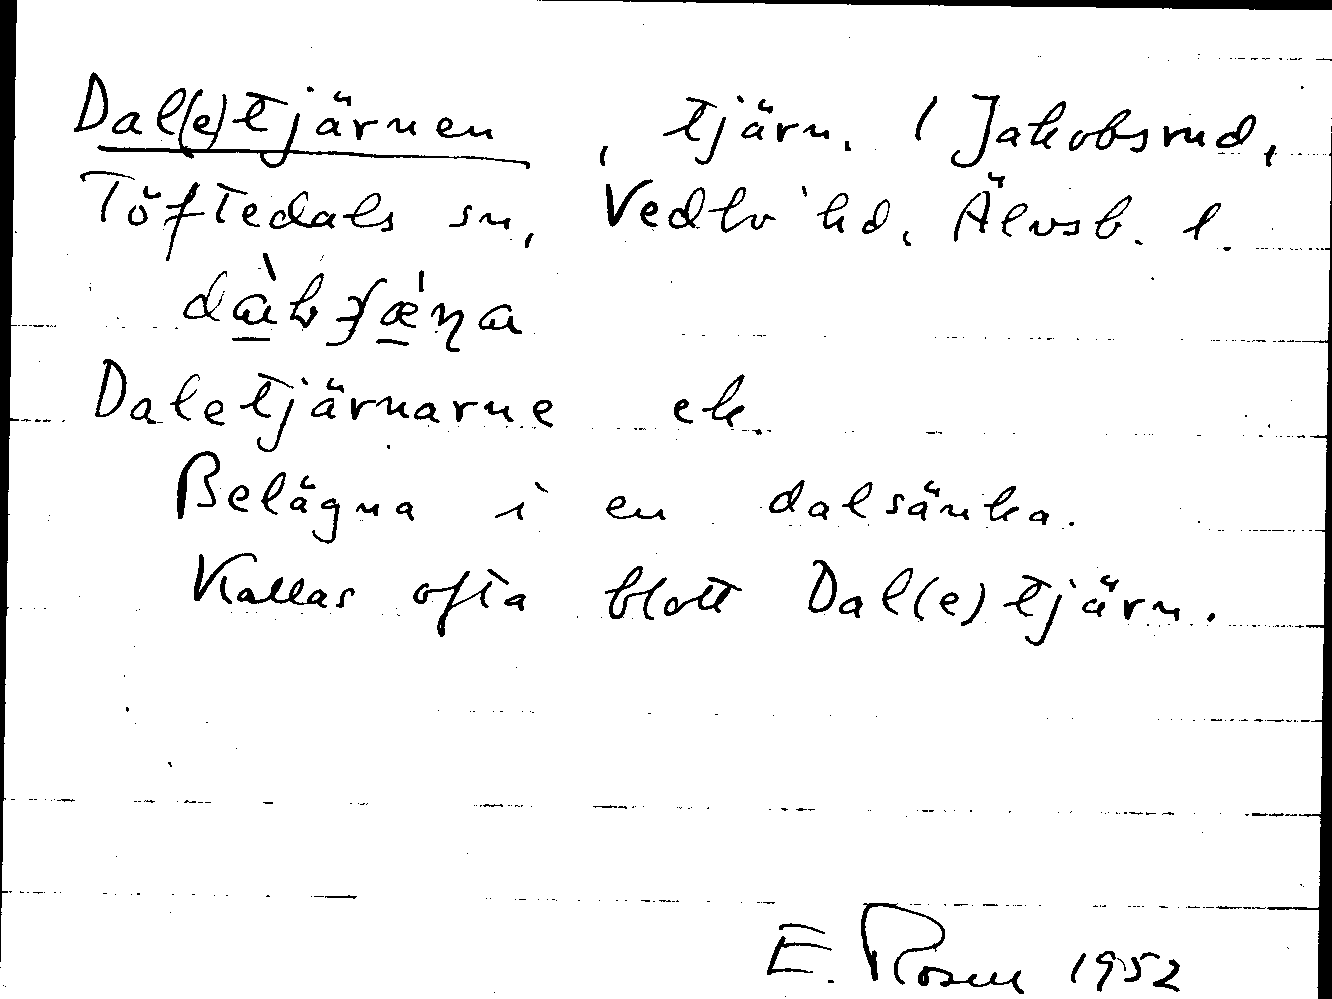 Dal(e)tjärnen, tjärn. / Jakobsrud,
Töftedals sn, Vedbo hd, Älvsb. l.
Daletjärnarne ek.
Belägna i en dalsänka.
Kallas ofta blott Dal(e)tjärn.
E. Rosen 1952